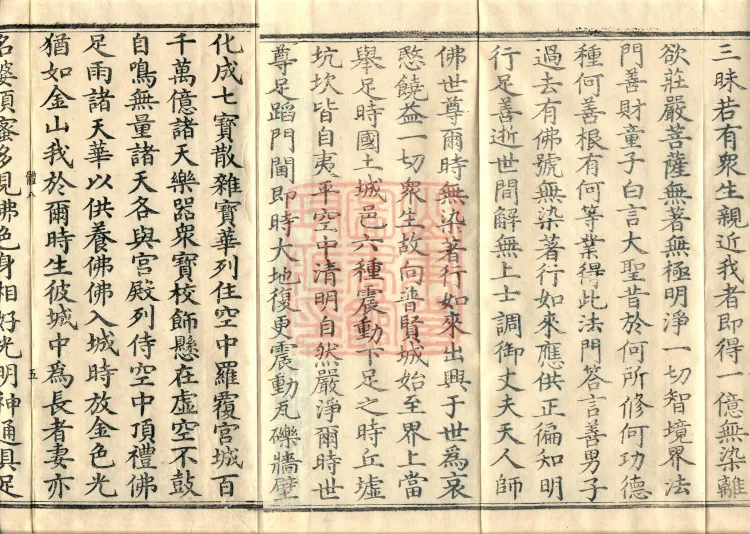 三昧若有衆生親近我者即得一億無染離
欲莊嚴菩薩無著無極明淨一切智境界法
門善財童子白言大聖昔於何所修何功德
種何善根有何等業得此法門答言善男子
過去有佛號無染著行如來應供正徧知明
行足善逝世間解無上士調御丈夫天人師
佛世尊爾時無染著行如來出興于世為哀
愍饒益一切衆生故向普賢城始至界上當
舉足時國土城邑六種震動下足之時丘墟
坑坎皆自夷平空中清明自然嚴淨爾時世
尊足蹈門閫即時大地復更震動瓦礫牆壁
化成七寶散雜寶華列住空中羅覆宮城百
千萬億諸天樂器衆寶校飾懸在虛空不鼓
自鳴無量諸天各與宮殿列侍空中頂禮佛
足雨諸天華以供養佛佛入城時放金色光
猶如金山我於爾時生彼城中為長者妻亦
五
名婆須蜜多見佛色身相好光明神通具足